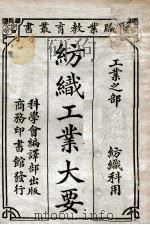 書叢育教業職
工業之部
紡織科用
紡織工業大要
科學會編譯部出版
商務印書館發行